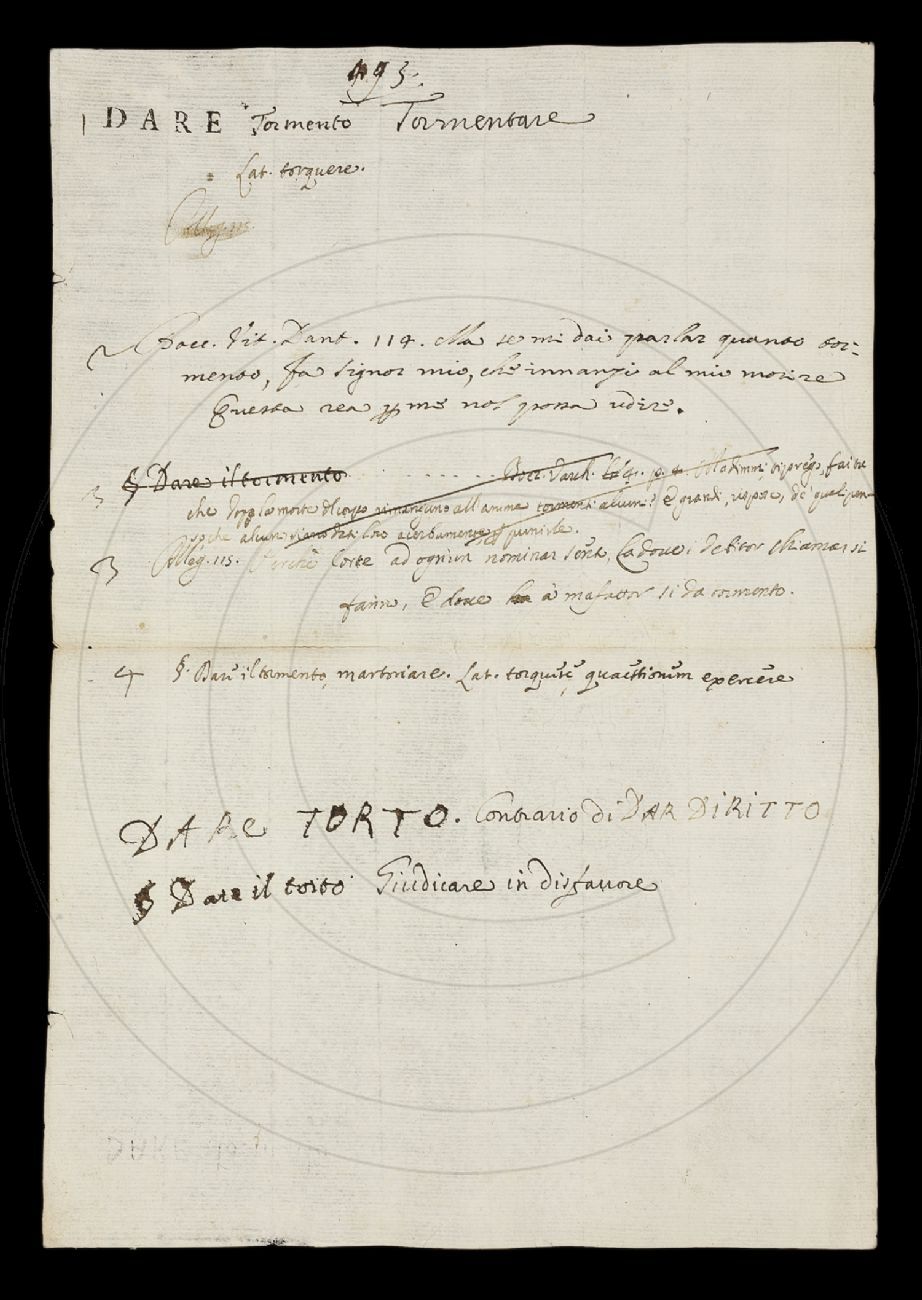 493.
1 DARE Tormento Tormentare
Lat. torquere.
Alleg. 115.
2 Bocc. Vit. Dant. 114. Ma se mi dai parlar quanto tor-
mento, fa signor mio, che innanzi al mio morire
Questa rea p me nol possa udire.
3 § Dare il tormento ........ Bocc. g. 4. Ma dimmi, ti prego, fai tu
che dopo la morte del corpo rimanghino all'anima tormenti alcuni? E grandi, rispose, de quali pen-
so che alcuni siano dati loro acerbamente p punirle.
3 Alleg. 115. Perchè Corte ad ognun nominar sent, Là dove i debitor chiamar si
fanno, E dove à malfattor si dà tormento.
4 §. Dare il tormento, martoriare. Lat. torquere, quaestionem exercere
DARE TORTO. Contrario di DAR DIRITTO
§ Dare il torto Giudicare in disfavore